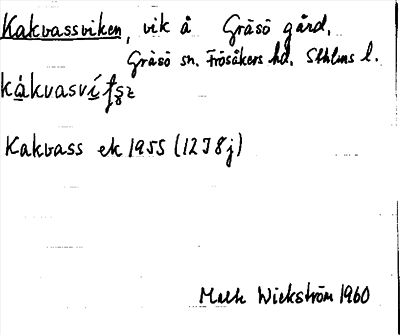 Kakvassviken, vik å Gräsö gård.
Gräsö sn. Frösåkers hd. Sthlms l.
Kakvass ek 1955 (12I8j)
Wickström 1960